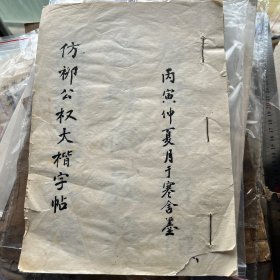 丙寅仲夏月于寒舍墨
仿柳公权大楷字帖